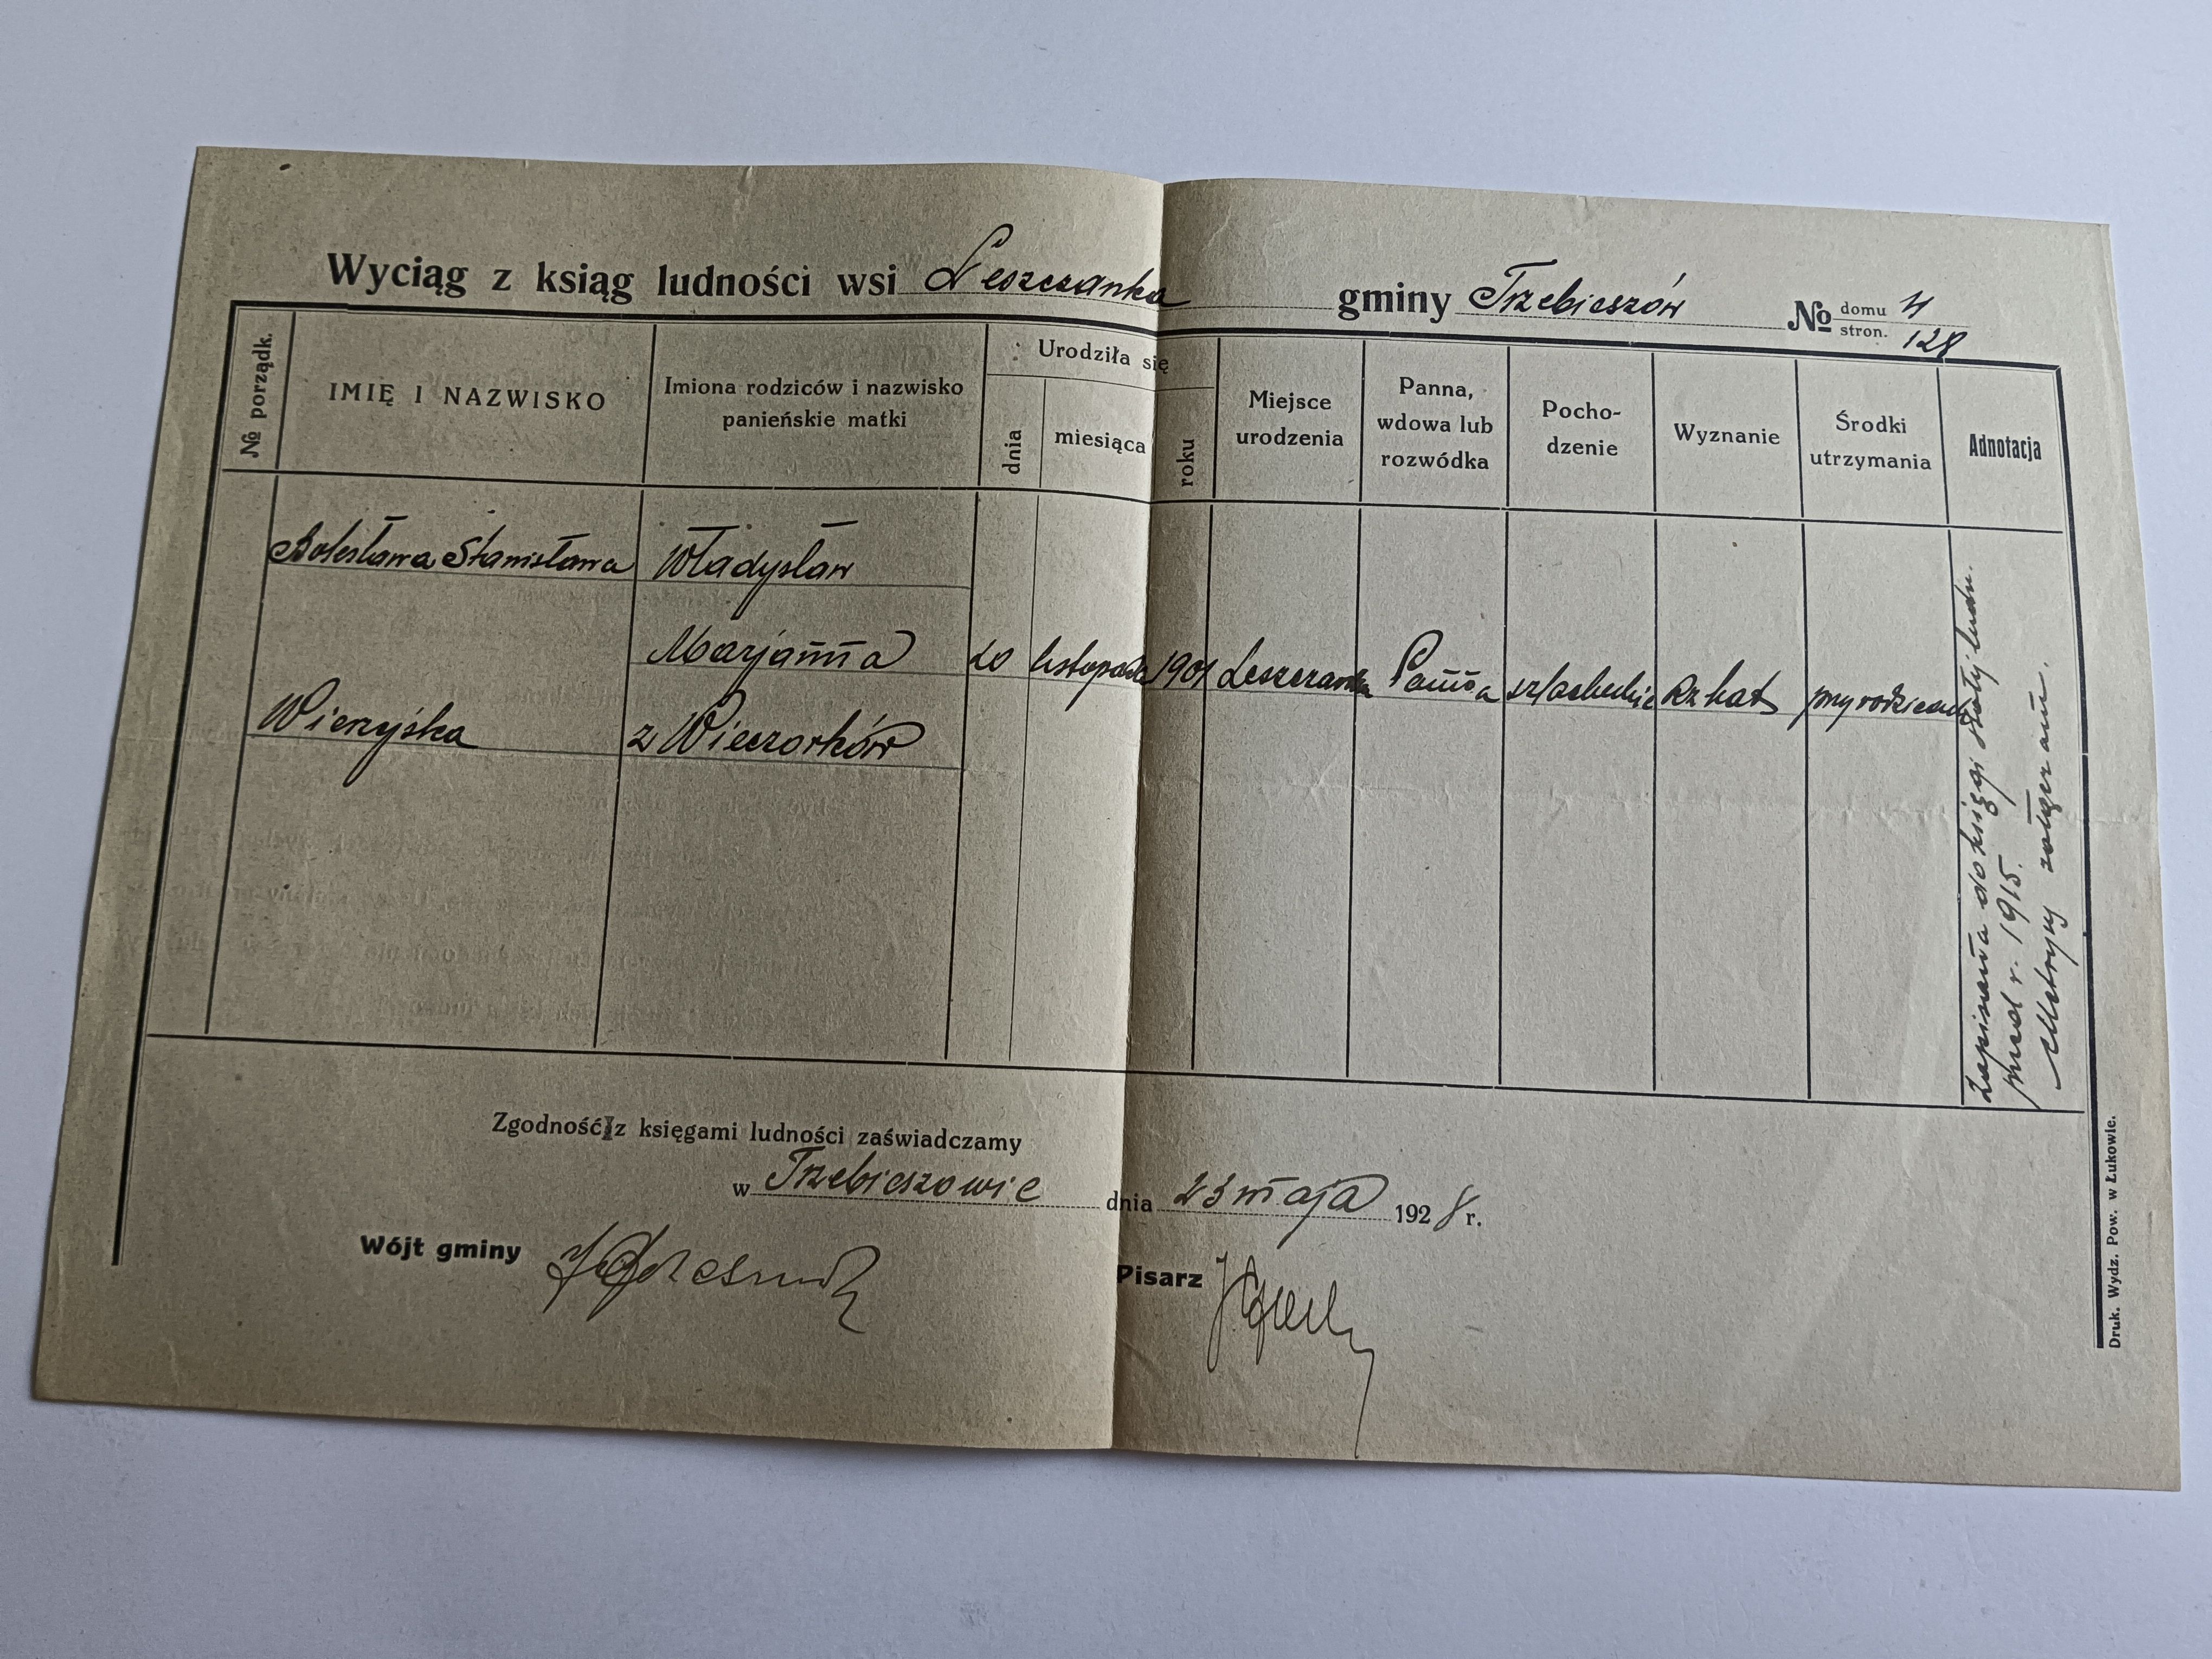 Wyciąg z ksiąg ludności wsi Leszczanka gminy Trzebieszów № domu 4
stron. 128
№ porządk.
IMIĘ I NAZWISKO
Imiona rodziców i nazwisko
panieńskie matki
Urodziła się
dnia
miesiąca
roku
Miejsce
urodzenia
Panna,
wdowa lub
rozwódka
Pocho-
dzenie
Wyznanie
Środki
utrzymania
Adnotacja
Bolesława Stanisława
Wierzejska
Władysław
Marjanna
z Wieczorków
20
listopada
1901
Leszczanka
Panna
szlacheckie
Rz kat
przy rodzicach
Zapisana do księgi stałej ludn.
przed r. 1915.
Metryy załącz am.
Zgodność z księgami ludności zaświadczamy
w Trzebieszowie dnia 23 maja 1928 r.
Wójt gminy
Pisarz
Druk. Wydz. Pow. w Łukowie.